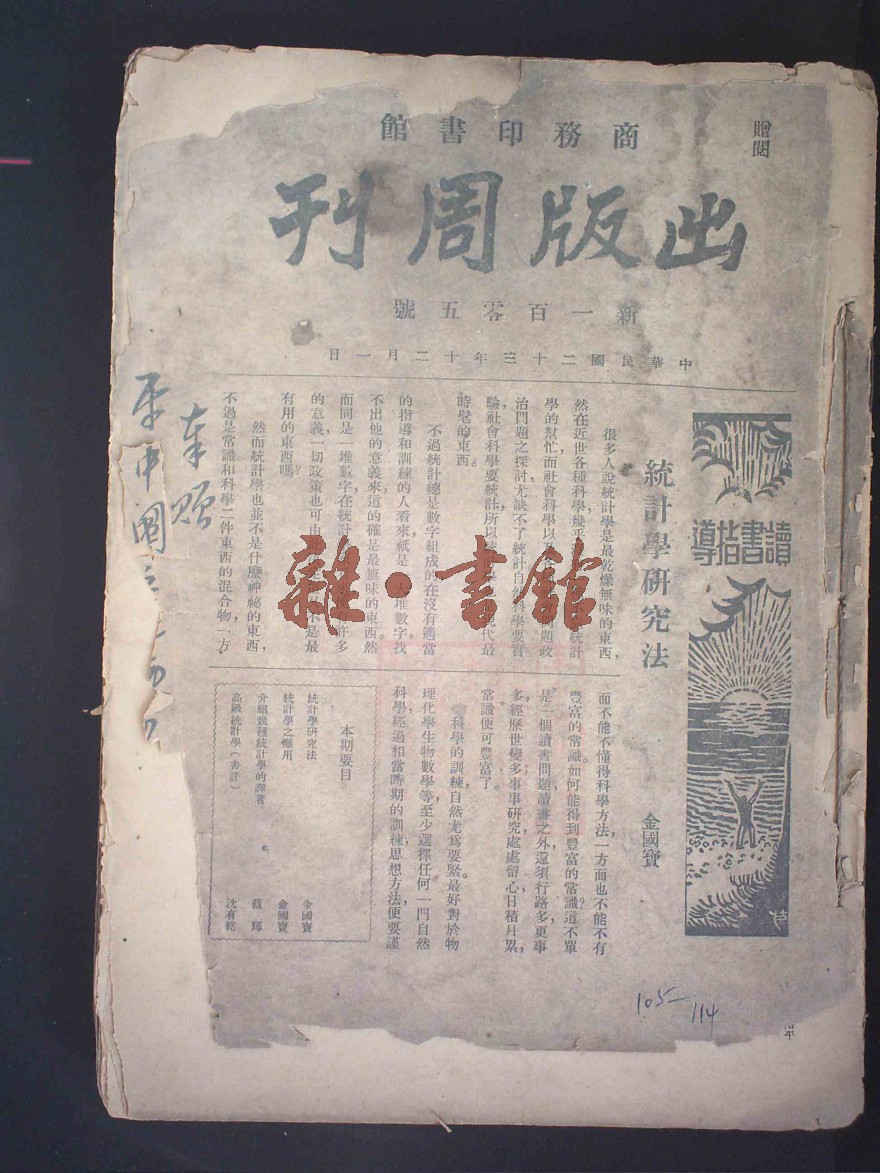 贈閱
商務印書館
出版周刊
新一百零五號
中華民國二十三年十二月一日
讀書指導
統計學研究法
金國寶
很多人說統計學是最乾燥無味的東西,
然在近世各種科學,幾乎
統計
學的幫忙而社會科學以及
問題政
治問題之探討,尤缺不了統計自然科學要實
驗,社會科學要統計,所以
現代最
時髦的東西。
不過統計總是數字組成的,在沒有適當
的指導和訓練的人看來,祇是一大堆數字,找
不出他的意義來,這的確是最無味的東西。然
而同是一堆數字,在統計
許多
的意義,一切政策也可由此
不是最
有用的東西嗎?
然而統計學也並不是什麼神祕的東西,
不過是常識和科學二件東西的混合物,一方
面不能不懂得科學方法,一方面也不能不有
豐富的常識。如何能得到豐富的常識?這不單
是一個讀書問題,讀書之外,還須行路多,更事
多,經歷世變多,事事研究,處處留心,日積月累,
常識便可豐富了。
科學的訓練,自然尤為要緊。最好對於物
理化學生物數學等,至少選擇任何一門自然
科學,經過相當時期的訓練,思想方法,便要謹
本期要目
統計學研究法 金國寶
統計學之應用 金國寶
介紹幾種統計學的譯著 范輝
高級統計學(書評) 沈有乾
奉贈
105—114
雜·書館